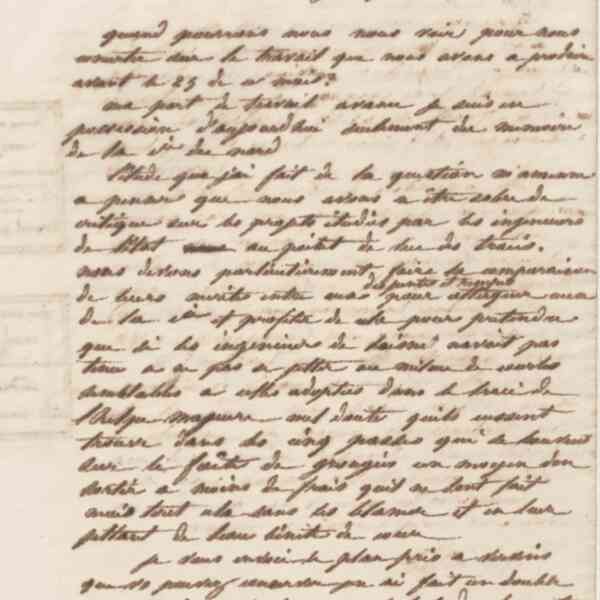 quand pourrons nous nous voir pour nous
sur le travail que nous avons a produire
avant le 25 de ce mois?
ma part de travail avance je suis en
possession d'aujourdhui seulement du memoire
de la cie du nord
l'étude que j'ai fait de la question m'amene
a penser que nous avons a être sobre de
critique sur les projets étudiés par les ingenieurs
de l'Etat au point de vue des tracés.
nous devons particulierement faire la comparaison
des pentes et rampes
de leurs merites entre eux pour attaquer
de la cie et profiter de cela pour pretendre
que si les ingenieurs de navait pas
tenu a ne pas se jetter au milieu de courbes
semblables a celles adoptées dans le tracé de
nul doute quils eussent
trouvé dans les cinq passes qui se trouvent
sur le faîte de un moyen d'en
sortir a moins de frais quils ne l'ont fait
mais tout cela sans les blamer et en leur
jettant de l'eau bénite de cour
je vous envoie le plan pris a
que vs pouvez conserver jen ai fait un double